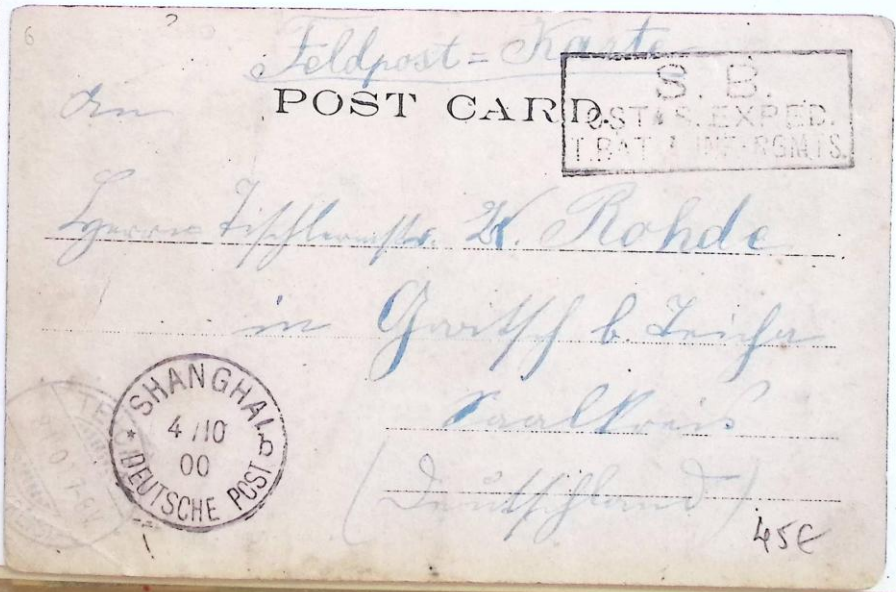 Feldpost = Karte
POST CARD.
S. B.
OSTAS. EXPED.
BAT INF RGMTS.
An
Herrn Tischlermstr. W. Rohde
in b. Teicha
Saalkreis
(Deutschland)
SHANGHAI
b
4/10
00
* DEUTSCHE POST *
45€